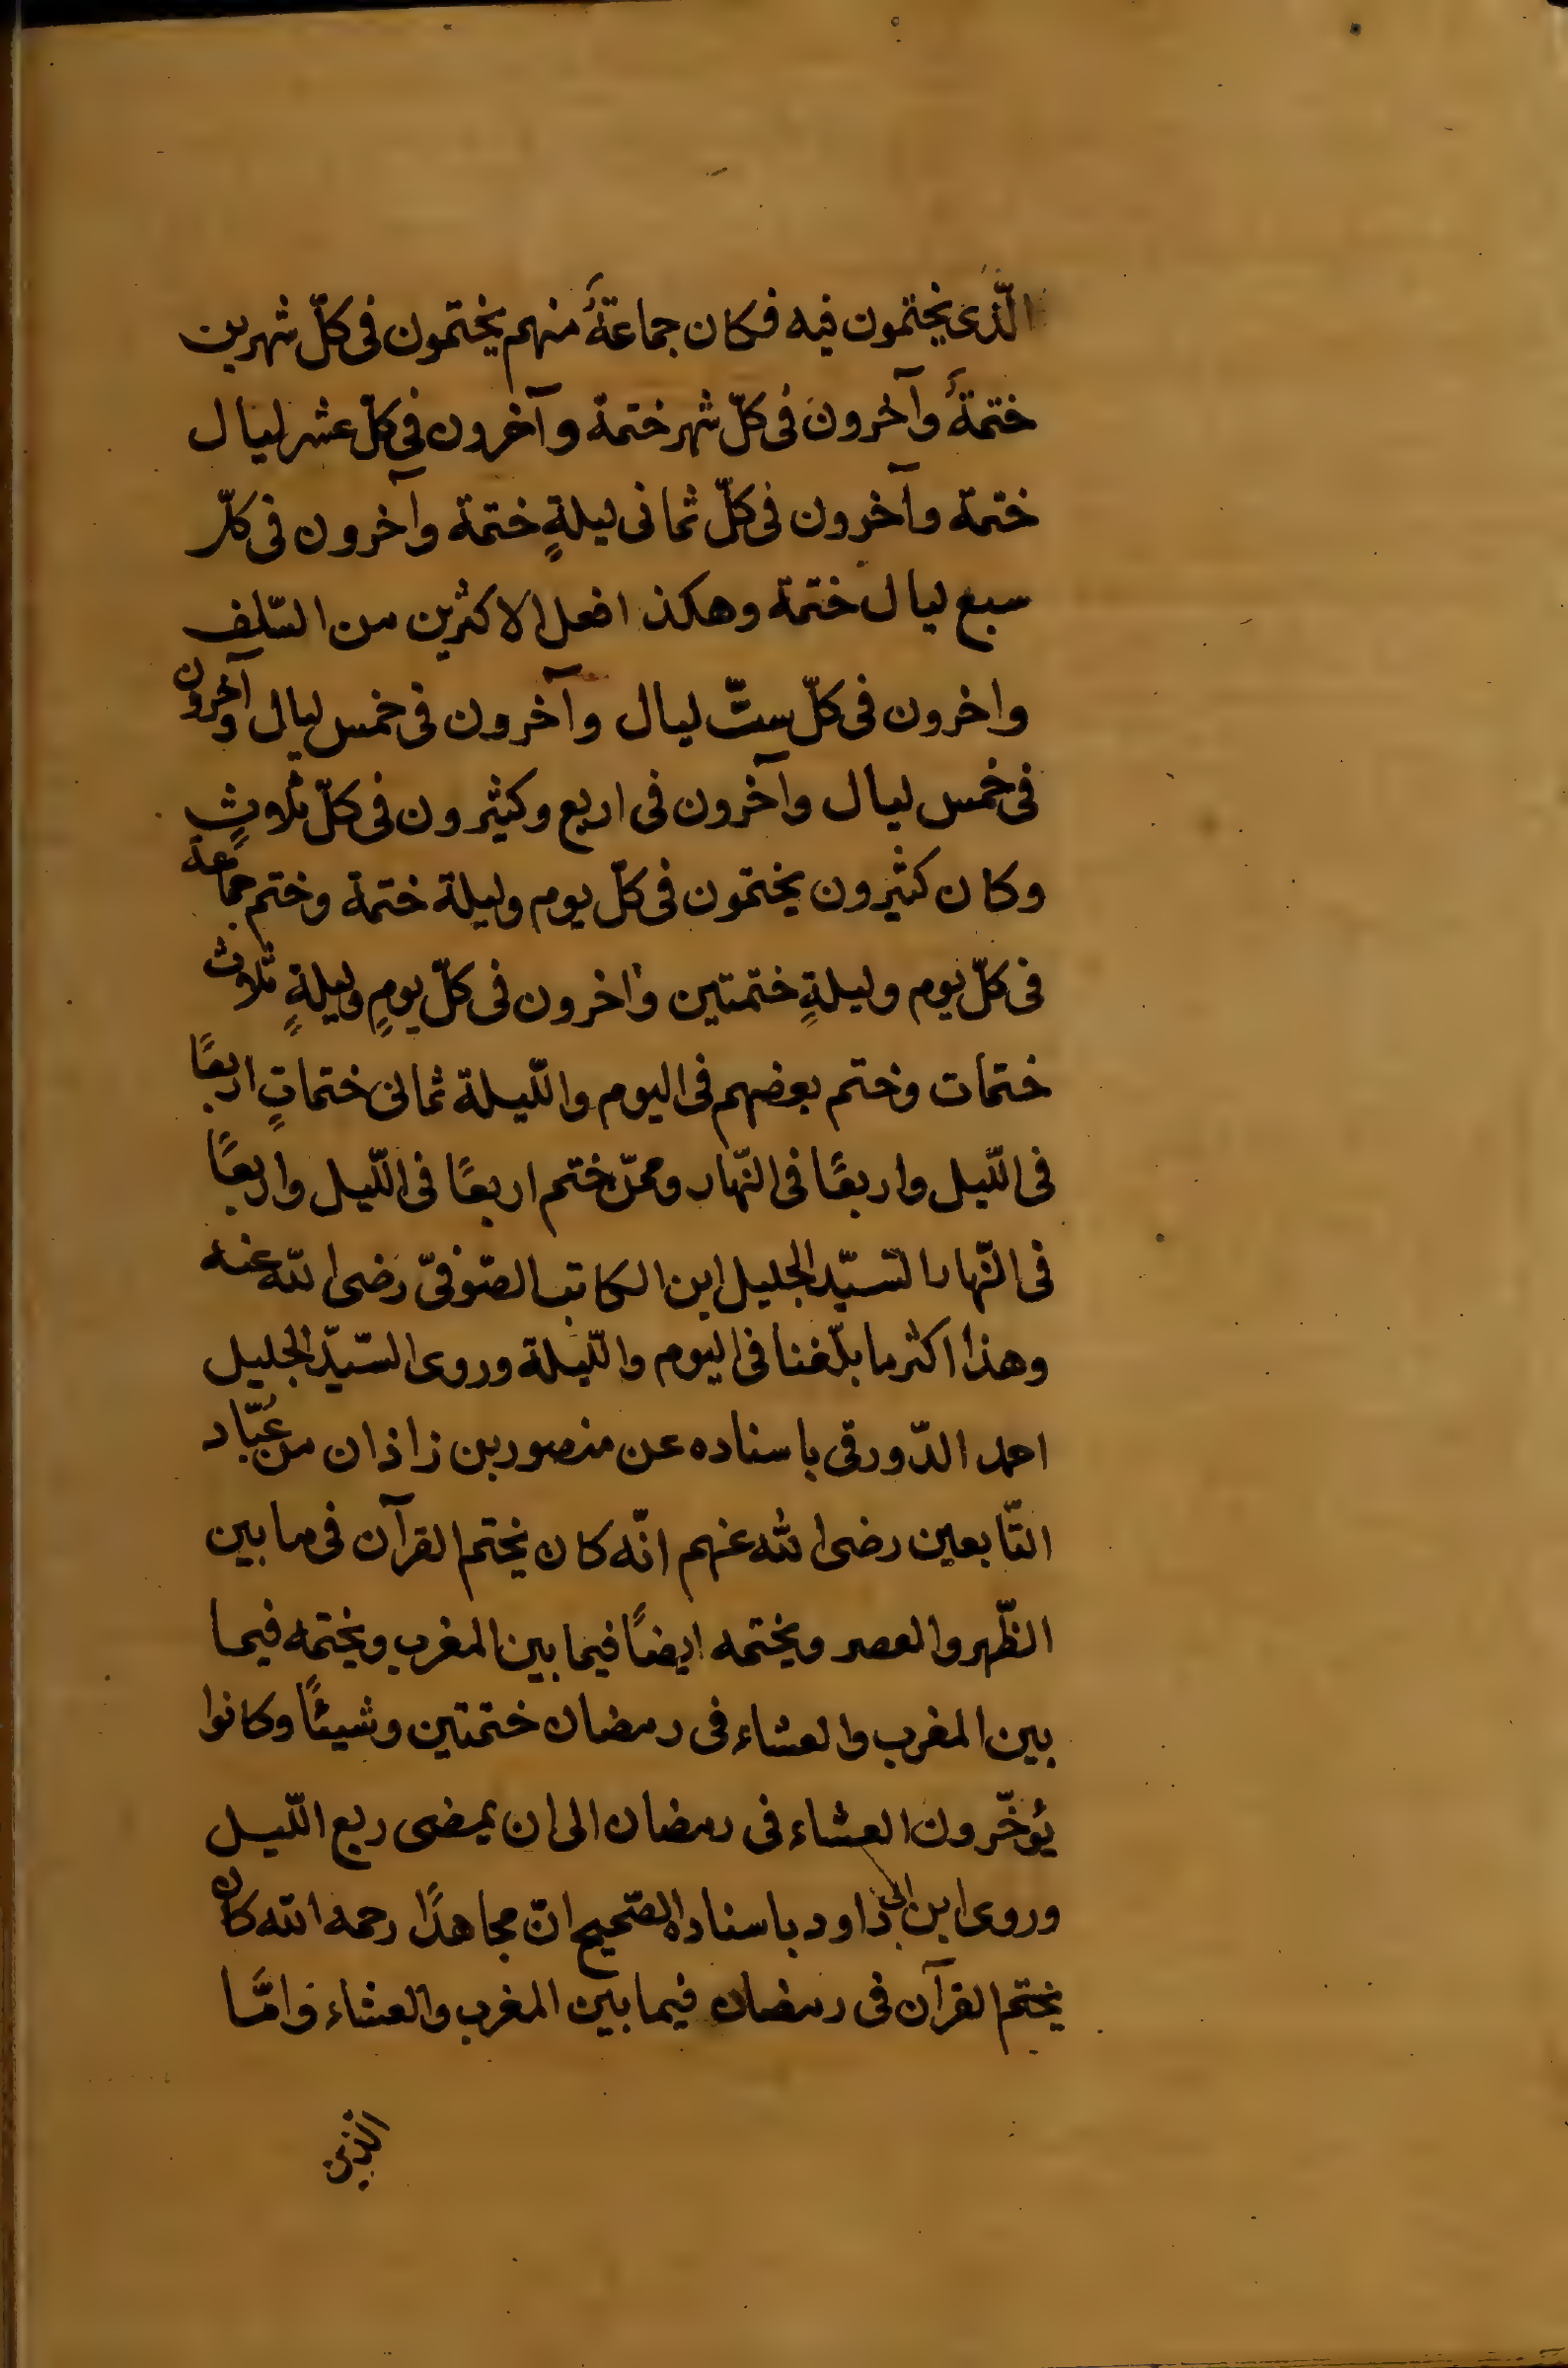 الّذى يختمون فيه فكان جماعةً منهم يختمون فى كلّ شهرين
ختمةً وآخرونَ فى كلّ شهر ختمة وآخرون فى كلّ عشر ليال
ختمة وآخرون فى كلّ ثمانى ليلةٍ ختمة وآخرون فى كلّ
سبع ليال ختمة وهكذا فعل الاكثرين من السّلف
واخرون فى كلّ ستّ ليال وآخرون فى خمس ليال وآخرون
فى خمس ليال وآخرون فى اربع وكثيرون فى كلّ ثلاثٍ
وكان كثيرون يختمون فى كلّ يوم وليلة ختمة وختم جماعة
فى كلّ يوم وليلةٍ ختمتين واخرون فى كلّ يومٍ وليلةٍ ثلاث
ختمات وختم بعضهم فى اليوم واللّيلة ثمانى ختماتٍ اربعًا
فى اللّيل واربعًا فى النّهار وممّن ختم اربعًا فى اللّيل واربعًا
فى النّهار السّيّد الجليل ابن الكاتب الصّوفىّ رضى الله عنه
وهذا اكثر ما بلّغنا فى اليوم واللّيلة وروى السّيّد الجليل
احمد الدّورقى باسناده عن منصور بن زاذان من عُبّاد
التّابعين رضى الله عنهم انّه كان يختم القرآن فى ما بين
الظّهر والعصر ويختمه ايضًا فيما بين المغرب ويختمه فيما
بين المغرب والعشاء فى رمضان ختمتين وشيئًا وكانوا
يؤخّرون العشاء فى رمضان الى ان يمضى ربع اللّيل
وروى ابن ابى داود باسناده الصّحيح انّ مجاهدًا رحمه الله كان
يختم القرآن فى رمضان فيما بين المغرب والعشاء وامّا
الذين